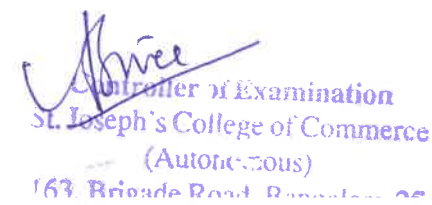 Controller of Examination
St. Joseph's College of Commerce
(Autonomous)
163, Brigade Road, Bangalore-25